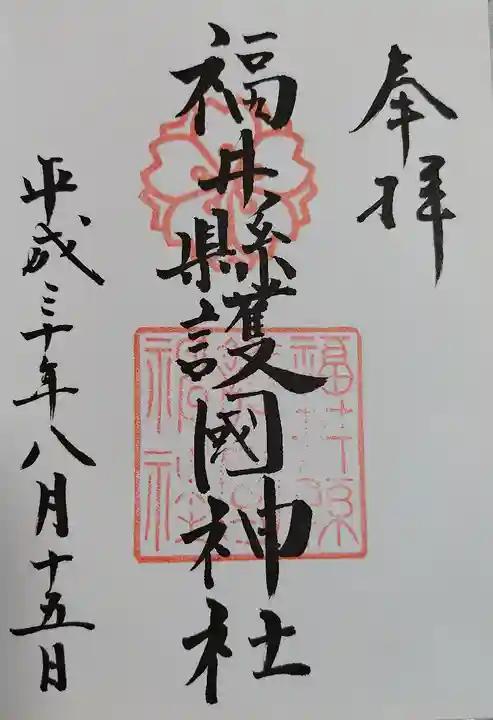 奉拝
福井縣護國神社
福井縣護國神社
平成三十年八月十五日